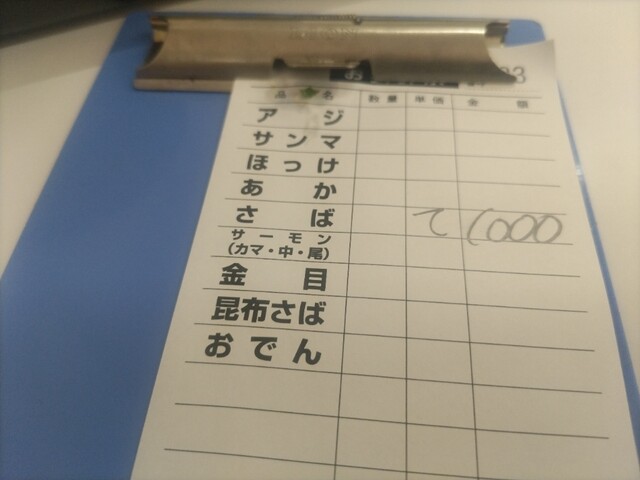 お
品名 数量 単価 金額
アジ
サンマ
ほっけ
あか
さば て 1000
サーモン
(カマ・中・尾)
金目
昆布さば
おでん